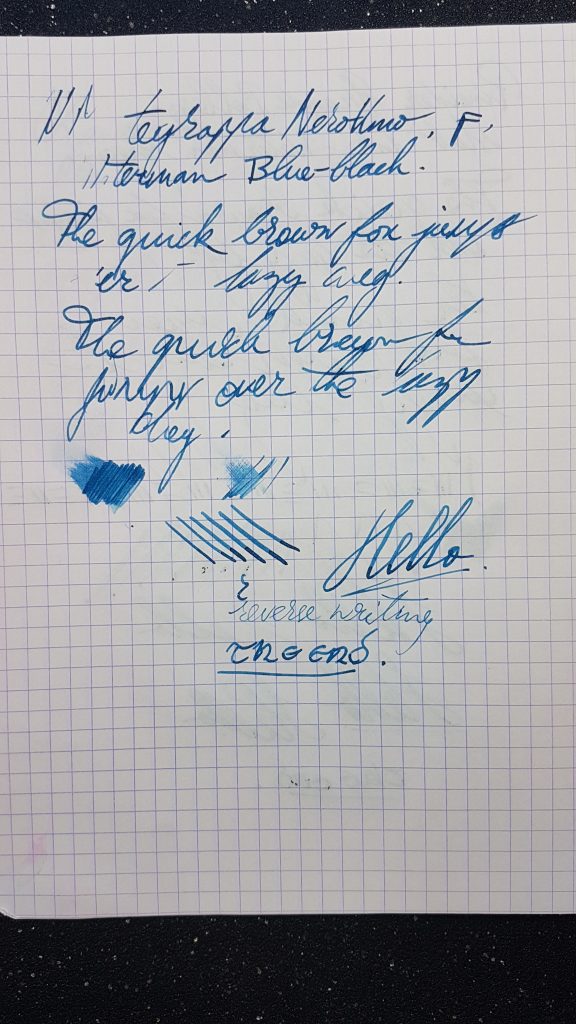 tegrappa NeroUno, F.
terman Blue-black.
The quick brown fox jumps
er lazy dog.
The quick brown fox
jumps over the lazy
dog.
Hello.
reverse writing
THE END.